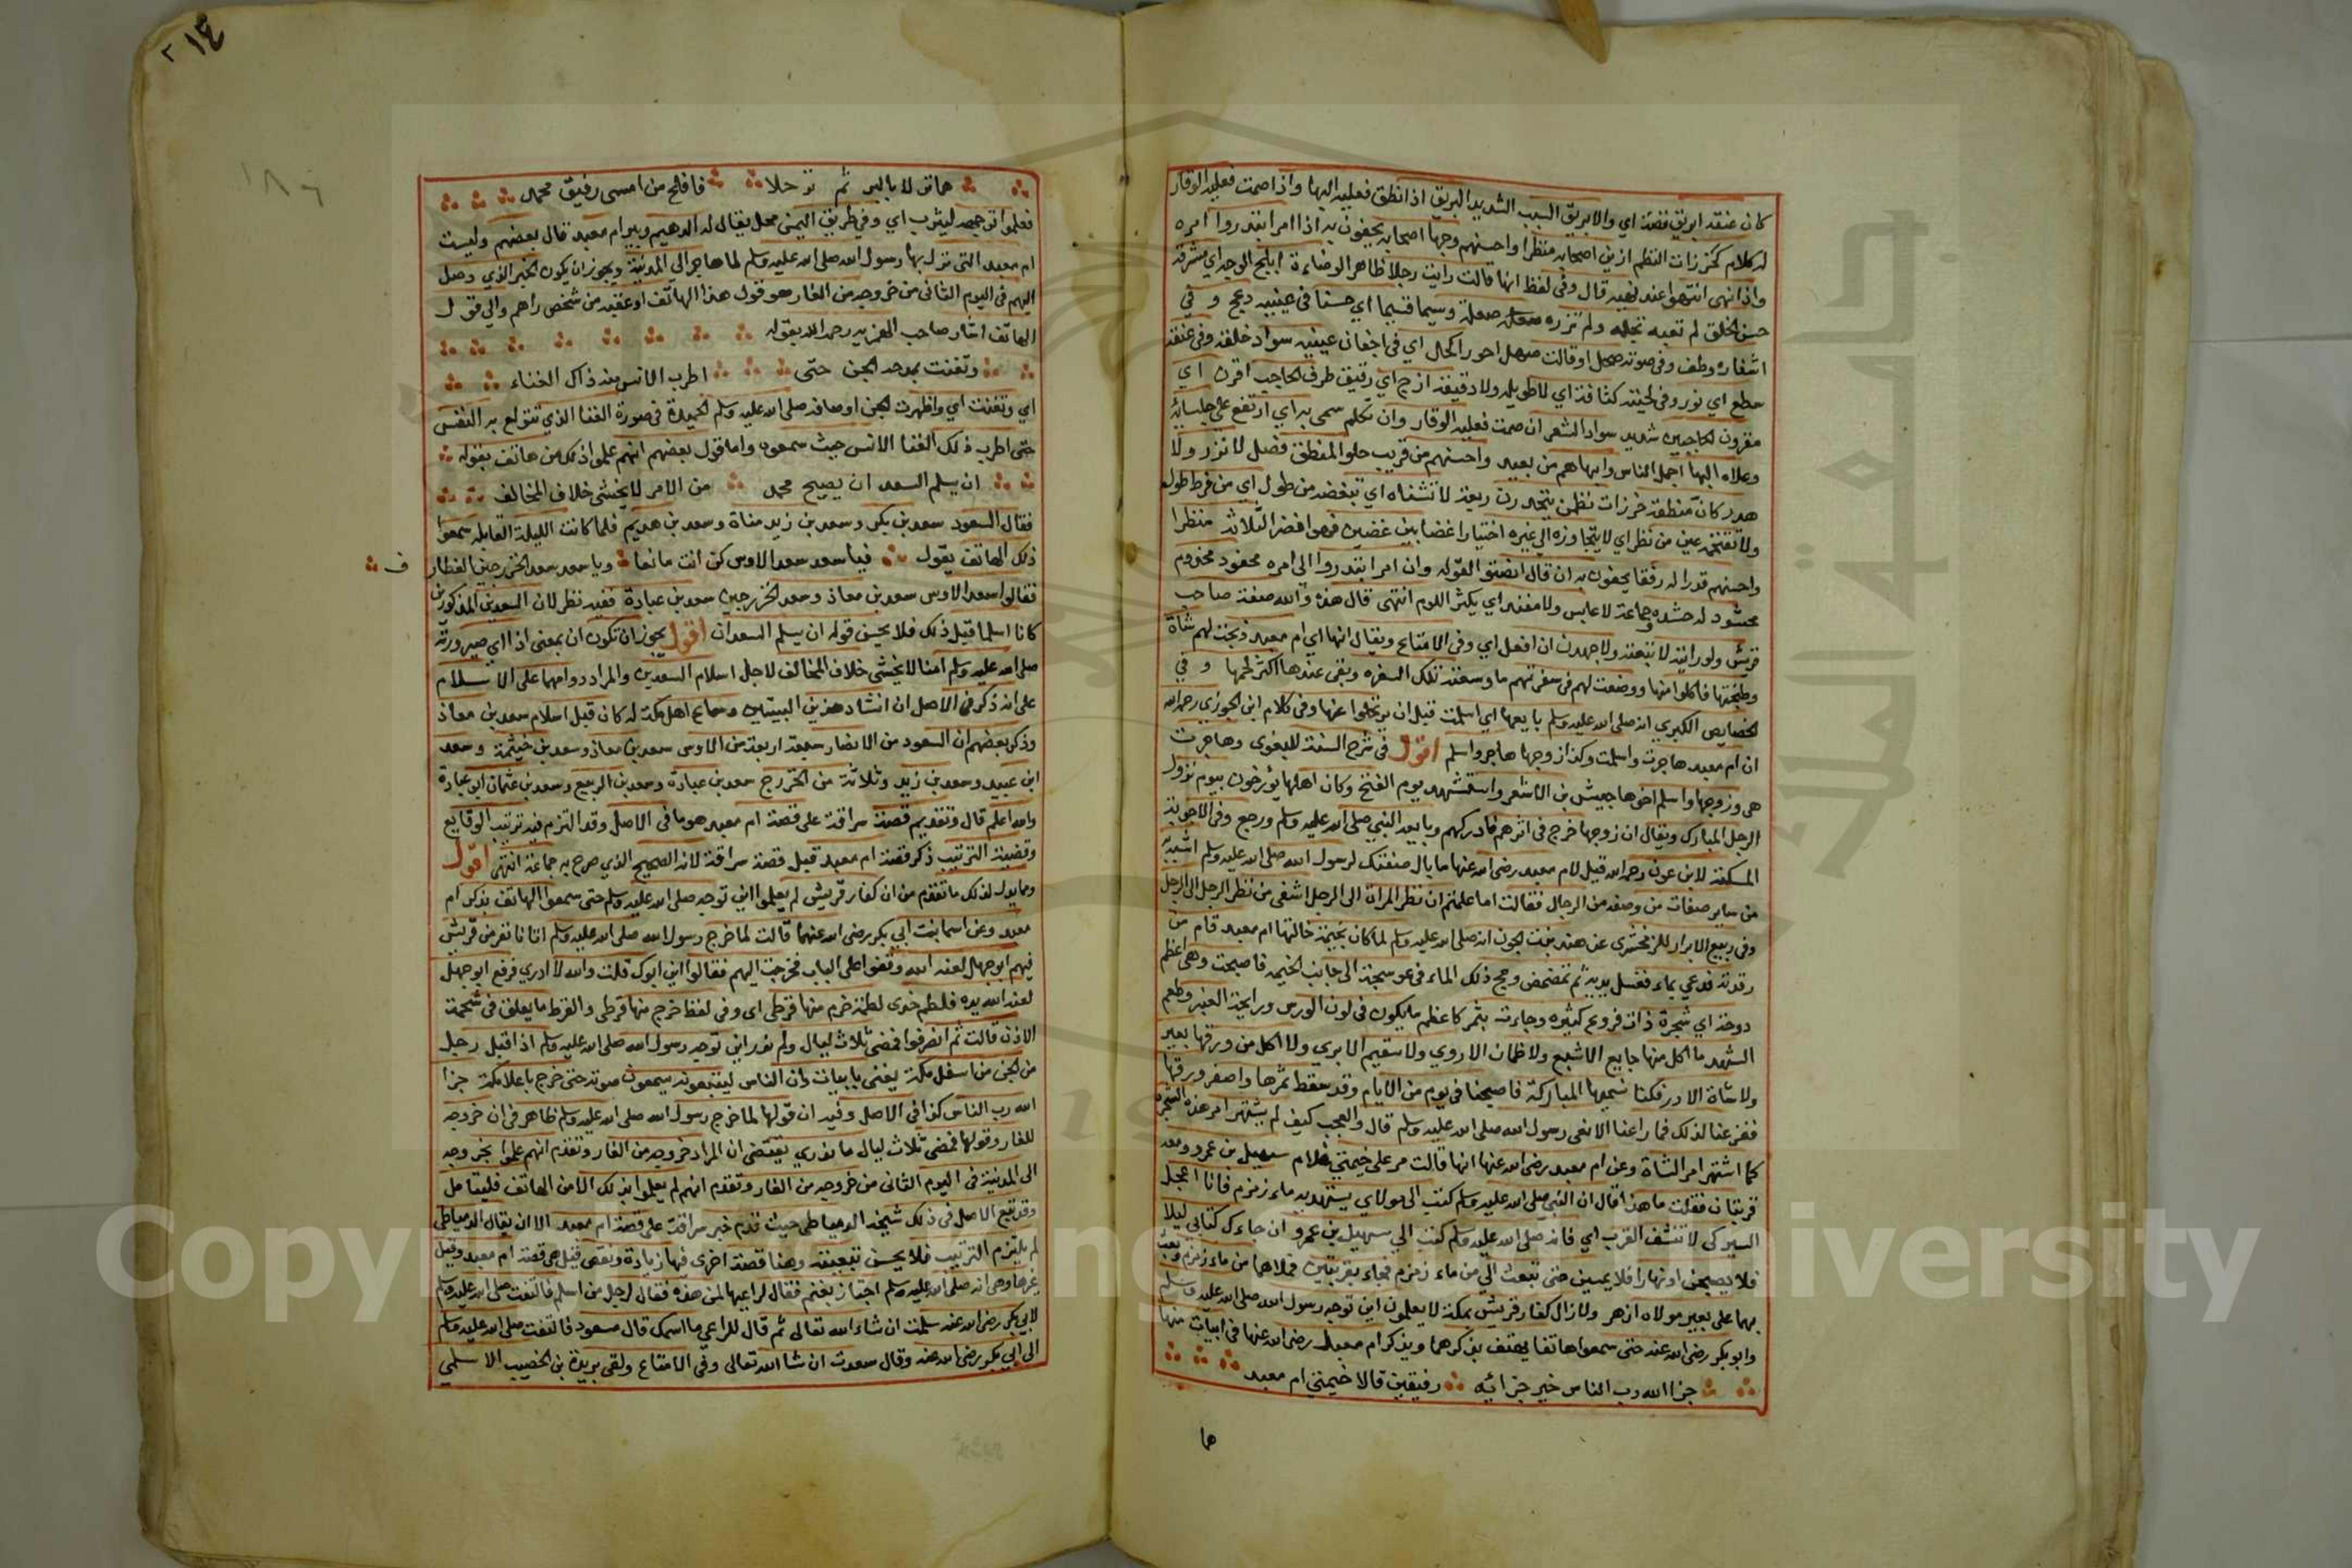 كان عنقه ابريق فضة اي والابريق السيب الشديد البريق اذا نطق فعليه البها واذا صمت فعليه الوقار
له كلام كخرزات النظم ازين اصحابه منظرا واحسنهم وجها اصحابه يحفون به اذا امر ابتدروا امره
واذا نهى انتهوا عند نهيه قال وفي لفظ انها قالت رايت رجلا ظاهر الوضاءة ابلج الوجه اي مشرقه
حسن الخلق لم تعبه ثجله ولم تزره صعلة وسيما قسيما اي حسنا في عينيه دعج و في
اشفاره وطف وفي صوته صحل او قالت صهل احور اكحل اي في اجفان عينيه سواد خلقة وفي عنقه
سطع اي نور وفي لحيته كثافة اي لا طويلة ولا دقيقة ازج اي رقيق طرف الحاجب اقرن اي
مقرون الحاجبين شديد سواد الشعر ان صمت فعليه الوقار وان تكلم سمى به اي ارتفع على جلسائه
وعلاه البها اجمل الناس وابهاهم من بعيد واحسنهم من قريب حلو المنطق فصل لا نزر ولا
هدر كان منطقه خرزات نظمن يتحدرن ربعة لا تشناه اي تبغضه من طول اي من فرط طوله
ولا تقتحمه عين من نظر اي لا يتجاوزه الى غيره اختيارا غصنا بين غصنين فهو افضر الثلاثة منظرا
واحسنهم قدرا له رفقا يحفون به ان قال انصتوا لقوله وان امر ابتدروا الى امره محفود مخدوم
محشود له حشده وجماعة لا عابس ولا مفند اي يكثر اللوم انتهى قال هذه والله صفة صاحب
قريش ولو رايته لاتبعته ولاجهدن ان افعل اي وفي الامتاع ويقال انها اي ام معبد ذبحت لهم شاة
وطبختها فاكلوا منها ووضعت لهم في سفرتهم ما وسعته تلك السفره وبقى عندها اكثر لحمها و في
الخصايص الكبرى انه صلى الله عليه وسلم بايعها اي اسلمت قبل ان يرتحلوا عنها وفي كلام ابن الجوزي رحمه الله
ان ام معبد هاجرت واسلمت وكذا زوجها هاجر واسلم اقول في شرح السنة للبغوي وهاجرت
هي وزوجها واسلم اخوها حبيش بن الاشعر واستشهد يوم الفتح وكان اهلها يؤرخون بيوم نزول
الرجل المبارك ويقال ان زوجها خرج في اثرهم فادركهم وبايعه النبي صلى الله عليه وسلم ورجع وفي الاجوبة
المسكتة لابن عون رحمه الله قيل لام معبد رضي الله عنها ما بال صفتك لرسول الله صلى الله عليه وسلم اشبه
من ساير صفات من وصفه من الرجال فقالت اما علمتم ان نظر المراة الى الرجل اشفى من نظر الرجل الى الرجل
وفي ربيع الابرار للزمخشري عن هند بنت الجون انه صلى الله عليه وسلم لما كان بخيمة خالتها ام معبد قام من
رقدته فدعي بماء فغسل يديه ثم تمضمض ومج ذلك الماء في عوسجة الى جانب الخيمه فاصبحت وهي اعظم
دوحة اي شجرة ذات فروع كثيره وجاءت بثمر كاعظم ما يكون في لون الورس ورايحة العنبر وطعم
الشهد ما اكل منها جايع الا شبع ولا ظمان الا روي ولا سقيم الا بري ولا اكل من ورقها بعير
ولا شاة الا در فكنا نسميها المباركة فاصبحنا في يوم من الايام وقد سقط ثمرها واصفر ورقها
ففزعنا لذلك فما راعنا الا نعي رسول الله صلى الله عليه وسلم قال والعجب كيف لم يشتهر امر هذه الشجرة
كما اشتهر امر الشاة وعن ام معبد رضي الله عنها انها قالت مر على خيمتي غلام سهيل بن عمرو ومعه
قربتان فقلت ما هذا قال ان النبي صلى الله عليه وسلم كتب الى مولاي يستهديه ماء زمزم فانا اعجل
السير كي لا تنشف القرب اي فانه صلى الله عليه وسلم كتب الى سهيل بن عمرو ان جاءك كتابي ليلا
فلا يصبحن او نهارا فلا يمسين حتى تبعث الي من ماء زمزم فجاء بقربتين فملاهما من ماء زمزم وبعث
بهما على بعير مولاه ازهر ولا زال كفار قريش بمكة لا يعلمون اين توجه رسول الله صلى الله عليه وسلم
وابو بكر رضي الله عنه حتى سمعوا هاتفا يهتف بذكرهما ويذكر ام معبد رضي الله عنها في ابيات منها
جزا الله رب الناس خير جزائه رفيقين قالا خيمتي ام معبد
هما
٢١٤
١٨٦
هما نزلا بالبر ثم ترحلا فافلح من امسى رفيق محمد
فعلموا توجهه ليثرب اي وفي طريق اليمن محل يقال له الدهيم وبير ام معبد قال بعضهم وليست
ام معبد التي نزل بها رسول الله صلى الله عليه وسلم لما هاجر الى المدينة ويجوز ان يكون الخبر الذي وصل
اليهم في اليوم الثاني من خروجه من الغار هو قول هذا الهاتف او عقبه من شخص راهم والى قول
الهاتف اشار صاحب الهمزيه رحمه الله بقوله
وتغنت بمدحه الجن حتى اطرب الانس منه ذاك الغناء
اي وتغنت اي واظهرت الجن اوصافه صلى الله عليه وسلم الحميدة في صورة الغنا الذي تتولع به النفس
حتى اطرب ذلك الغنا الانس حيث سمعوه واما قول بعضهم انهم علموا ذلك من هاتف بقوله
ان يسلم السعد ان يصبح محمد من الامر لا يخشى خلاف المخالف
فقال السعود سعد بن بكر وسعد بن زيد مناة وسعد بن هديم فلما كانت الليلة القابله سمعوا
ذلك الهاتف يقول فيا سعد سعد الاوس كن انت مانعا ويا سعد سعد الخزرجين الغطار ف
فقالوا سعد الاوس سعد بن معاذ وسعد الخزرجين سعد بن عبادة ففيه نظر لان السعدين المذكورين
كانا اسلما قبل ذلك فلا يحسن قوله ان يسلم السعدان اقول يجوز ان تكون ان بمعنى اذ اي صيرورته
صلى الله عليه وسلم امنا لا يخشى خلاف المخالف لاجل اسلام السعدين والمراد دوامهما على الاسلام
على انه ذكر في الاصل ان انشاد هذين البيتين وسماع اهل مكة له كان قبل اسلام سعد بن معاذ
وذكر بعضهم ان السعود من الانصار سبعة اربعة من الاوس سعد بن معاذ وسعد بن خيثمة وسعد
ابن عبيد وسعد بن زيد وثلاثة من الخزرج سعد بن عبادة وسعد بن الربيع وسعد بن عثمان ابو عبادة
والله اعلم قال وتقديم قصة سراقة على قصة ام معبد هو ما في الاصل وقد التزم فيه ترتيب الوقايع
وقضية الترتيب ذكر قصة ام معبد قبل قصة سراقة لانه الصحيح الذي صرح به جماعة انتهى اقول
ومما يدل لذلك ما تقدم من ان كفار قريش لم يعلموا اين توجه صلى الله عليه وسلم حتى سمعوا الهاتف يذكر ام
معبد وعن اسما بنت ابي بكر رضي الله عنهما قالت لما خرج رسول الله صلى الله عليه وسلم اتانا نفر من قريش
فيهم ابو جهل لعنه الله وقفوا على الباب فخرجت اليهم فقالوا اين ابوك قلت والله لا ادري فرفع ابو جهل
لعنه الله يده فلطم خدي لطمة خرم منها قرطي اي وفي لفظ خرج منها قرطي والقرط ما يعلق في شحمة
الاذن قالت ثم انصرفوا فمضى ثلاث ليال ولم ندر اين توجه رسول الله صلى الله عليه وسلم اذ اقبل رجل
من الجن من اسفل مكة يغنى بابيات وان الناس ليتبعونه يسمعون صوته حتى خرج باعلا مكة جزا
الله رب الناس كذا في الاصل وفيه ان قولها لما خرج رسول الله صلى الله عليه وسلم ظاهر في ان خروجه
للغار وقولها فمضى ثلاث ليال ما ندري يقتضي ان المراد خروجه من الغار وتقدم انهم علموا بخروجه
الى المدينة في اليوم الثاني من خروجه من الغار وتقدم انهم لم يعلموا بذلك الا من الهاتف فليتامل
وقد تبع الاصل في ذلك شيخه الدمياطي حيث قدم خبر سراقة على قصة ام معبد الا ان يقال الدمياطي
لم يلتزم الترتيب فلا يحسن تبعيته وهنا قصة اخرى فيها زيادة ونقص قيل هي قصة ام معبد وقيل
غيرها وهي انه صلى الله عليه وسلم اجتاز بغنم فقال لراعيها لمن هذه فقال لرجل من اسلم فالتفت صلى الله عليه وسلم
لابي بكر رضي الله عنه سلمت ان شاء الله تعالى ثم قال للراعي ما اسمك قال مسعود فالتفت صلى الله عليه وسلم
الى ابي بكر رضي الله عنه وقال سعدت ان شا الله تعالى وفي الامتاع ولقى بريدة بن الخصيب الاسلمي
Copyright © King Saud University
جامعة الملك سعود